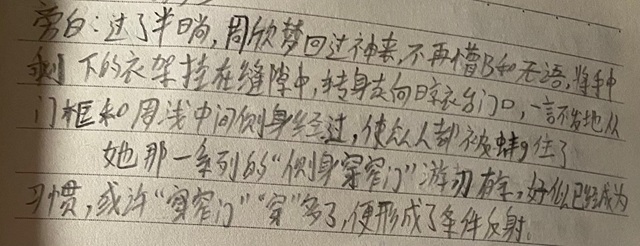 旁白:过了半晌,周欣梦回过神来,不再懵B和无语,将手中
剩下的衣架挂在缝隙中,转身走向晾衣台门口,一言不发地从
门框和周浅中间侧身经过,使众人都被蚌住了
她那一系列的“侧身穿窄门”游刃有余,好似已经成为
习惯,或许“穿窄门”“穿”多了,便形成了条件反射。